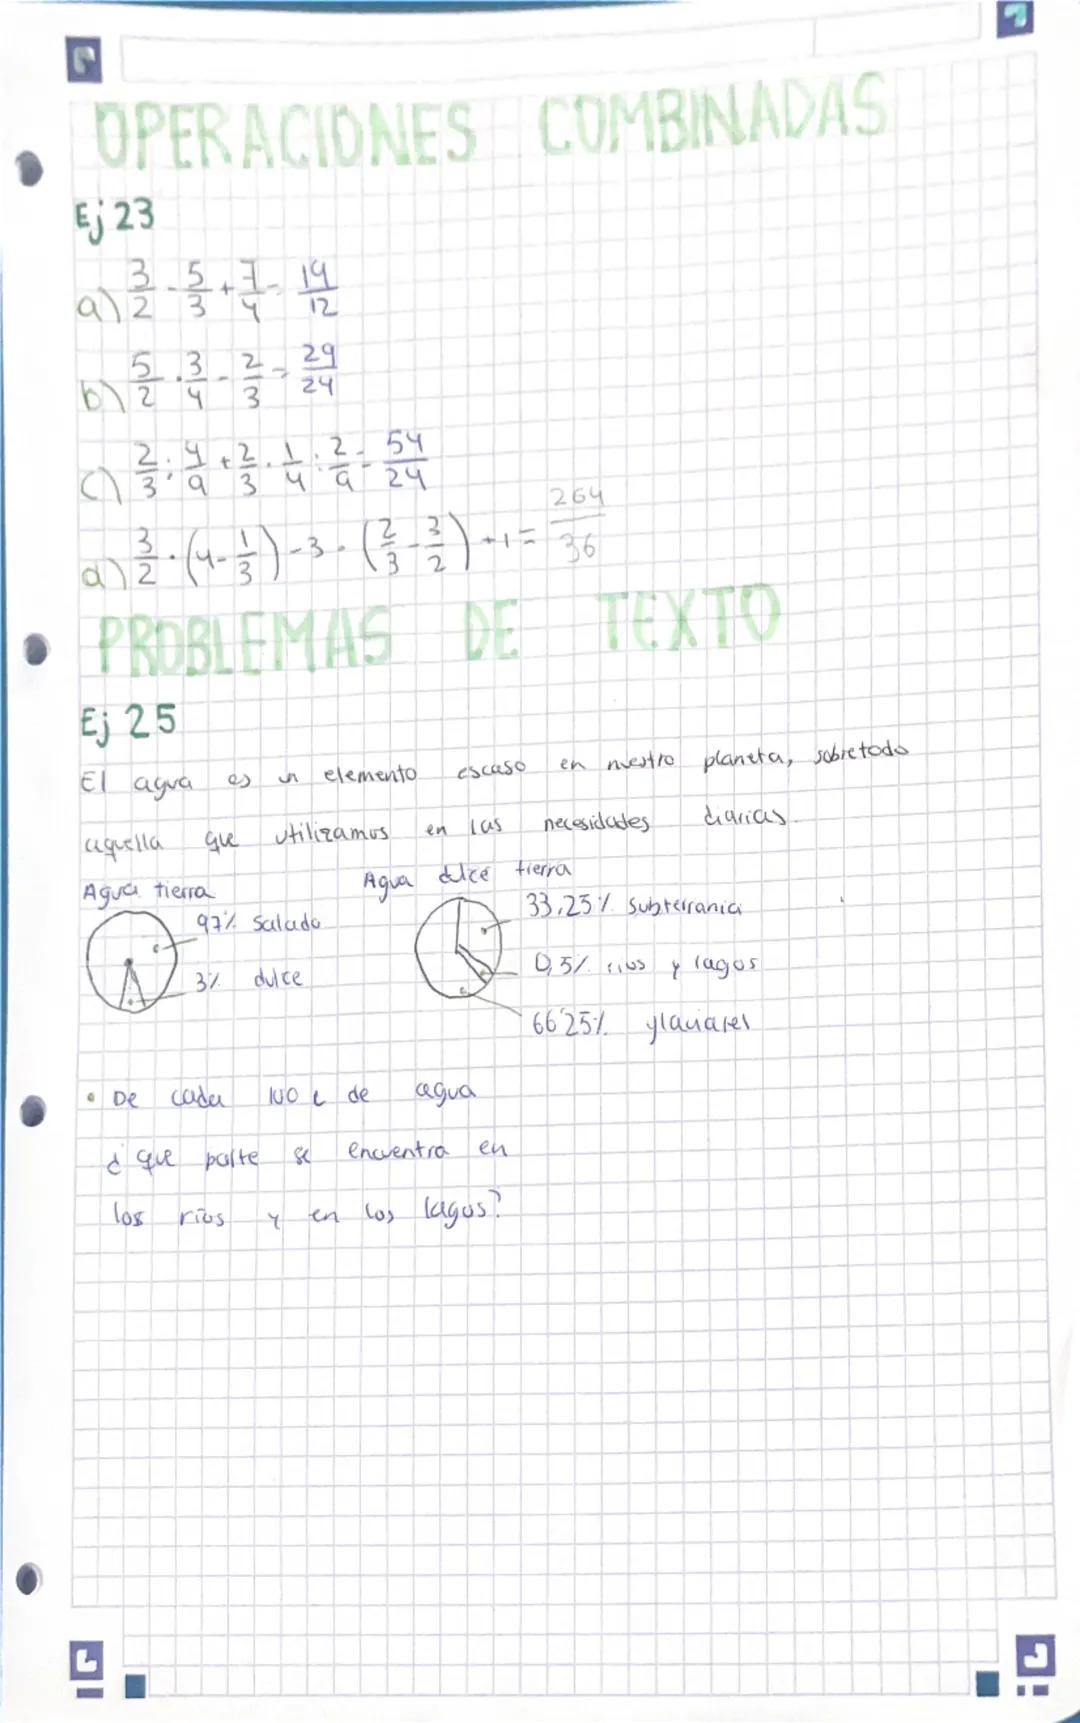 OPERACIONES COMBINADAS
Ej 23
a) 3/2 - 5/3 + 7/4 = 19/12
b) 5/2 · 3/4 - 2/3 = 29/24
c) 2/3 : 4/9 + 2/3 · 1/4 : 2/9 = 54/24
d) 3/2 · (4 - 1/3) - 3 · (2/3 - 3/2) + 1 = 264/36
PROBLEMAS DE TEXTO
Ej 25
El agua es un elemento escaso en nuestro planeta, sobretodo
aquella que utilizamos en las necesidades diarias.
Agua tierra
97% Salada
3% dulce
Agua dulce tierra
33,25% Subterrania
0,5% rios y lagos
66'25% glaciares
• De cada 100 L de agua
¿ que parte se encuentra en
los rios y en los lagos?